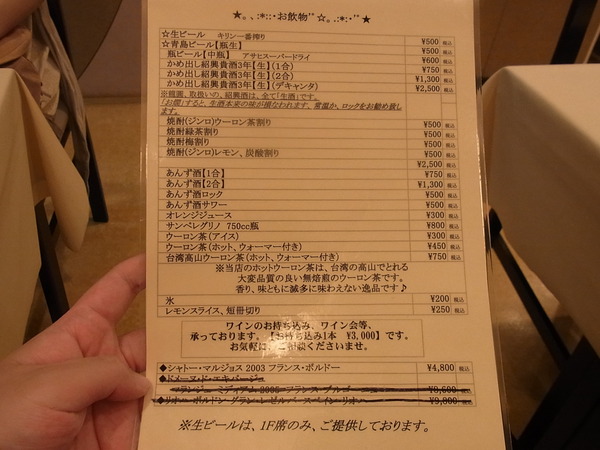 ★｡､:*::･お飲物ﾞ°☆｡.:*:･ﾞ°★
☆生ビール キリン一番搾り ¥500 税込
☆青島ビール【瓶生】 ¥500 税込
瓶ビール【中瓶】 アサヒスーパードライ ¥600 税込
かめ出し紹興貴酒3年【生】(1合) ¥750 税込
かめ出し紹興貴酒3年【生】(2合) ¥1,300 税込
かめ出し紹興貴酒3年【生】(デキャンタ) ¥2,500 税込
取扱いの、紹興酒は、全て「生酒」です。
「お燗」すると、生酒本来の味が損なわれます。常温か、ロックをお勧め致し
ます。
焼酎(ジンロ)ウーロン茶割り ¥500 税込
焼酎緑茶割り ¥500 税込
焼酎梅割り ¥500 税込
焼酎(ジンロ)レモン、炭酸割り ¥500 税込
¥2,500 税込
あんず酒【1合】 ¥750 税込
あんず酒【2合】 ¥1,300 税込
あんず酒ロック ¥500 税込
あんず酒サワー ¥500 税込
オレンジジュース ¥300 税込
サンペレグリノ 750cc瓶 ¥800 税込
ウーロン茶(アイス) ¥300 税込
ウーロン茶(ホット、ウォーマー付き) ¥450 税込
台湾高山ウーロン茶(ホット、ウォーマー付き) ¥750 税込
※当店のホットウーロン茶は、台湾の高山でとれる
大変品質の良い無焙煎のウーロン茶です。
香り、味ともに滅多に味わえない逸品です♪
氷 ¥200 税込
レモンスライス、短冊切り ¥250 税込
ワインのお持ち込み、ワイン会等、
承っております。【お持ち込み1本 ¥3,000】です。
お気軽にご相談くださいませ。
◆シャトー・マルジョス 2003 フランス・ボルドー ¥4,800 税込
◆ドメーヌ・ド・エキパージュ
フランス・ブルゴーニュ 税込
◆リオハ・ボルドン・グラン・レゼルバ スペイン・リオハ 税込
※生ビールは、1F席のみ、ご提供しております。